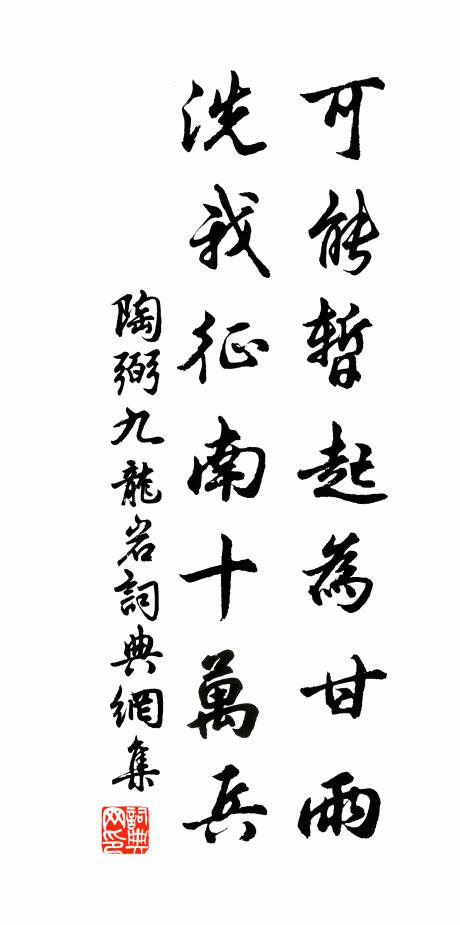 可能暫起為甘雨
洗我征南十萬兵
陶弼九龍岩詞典網集
詞典网印